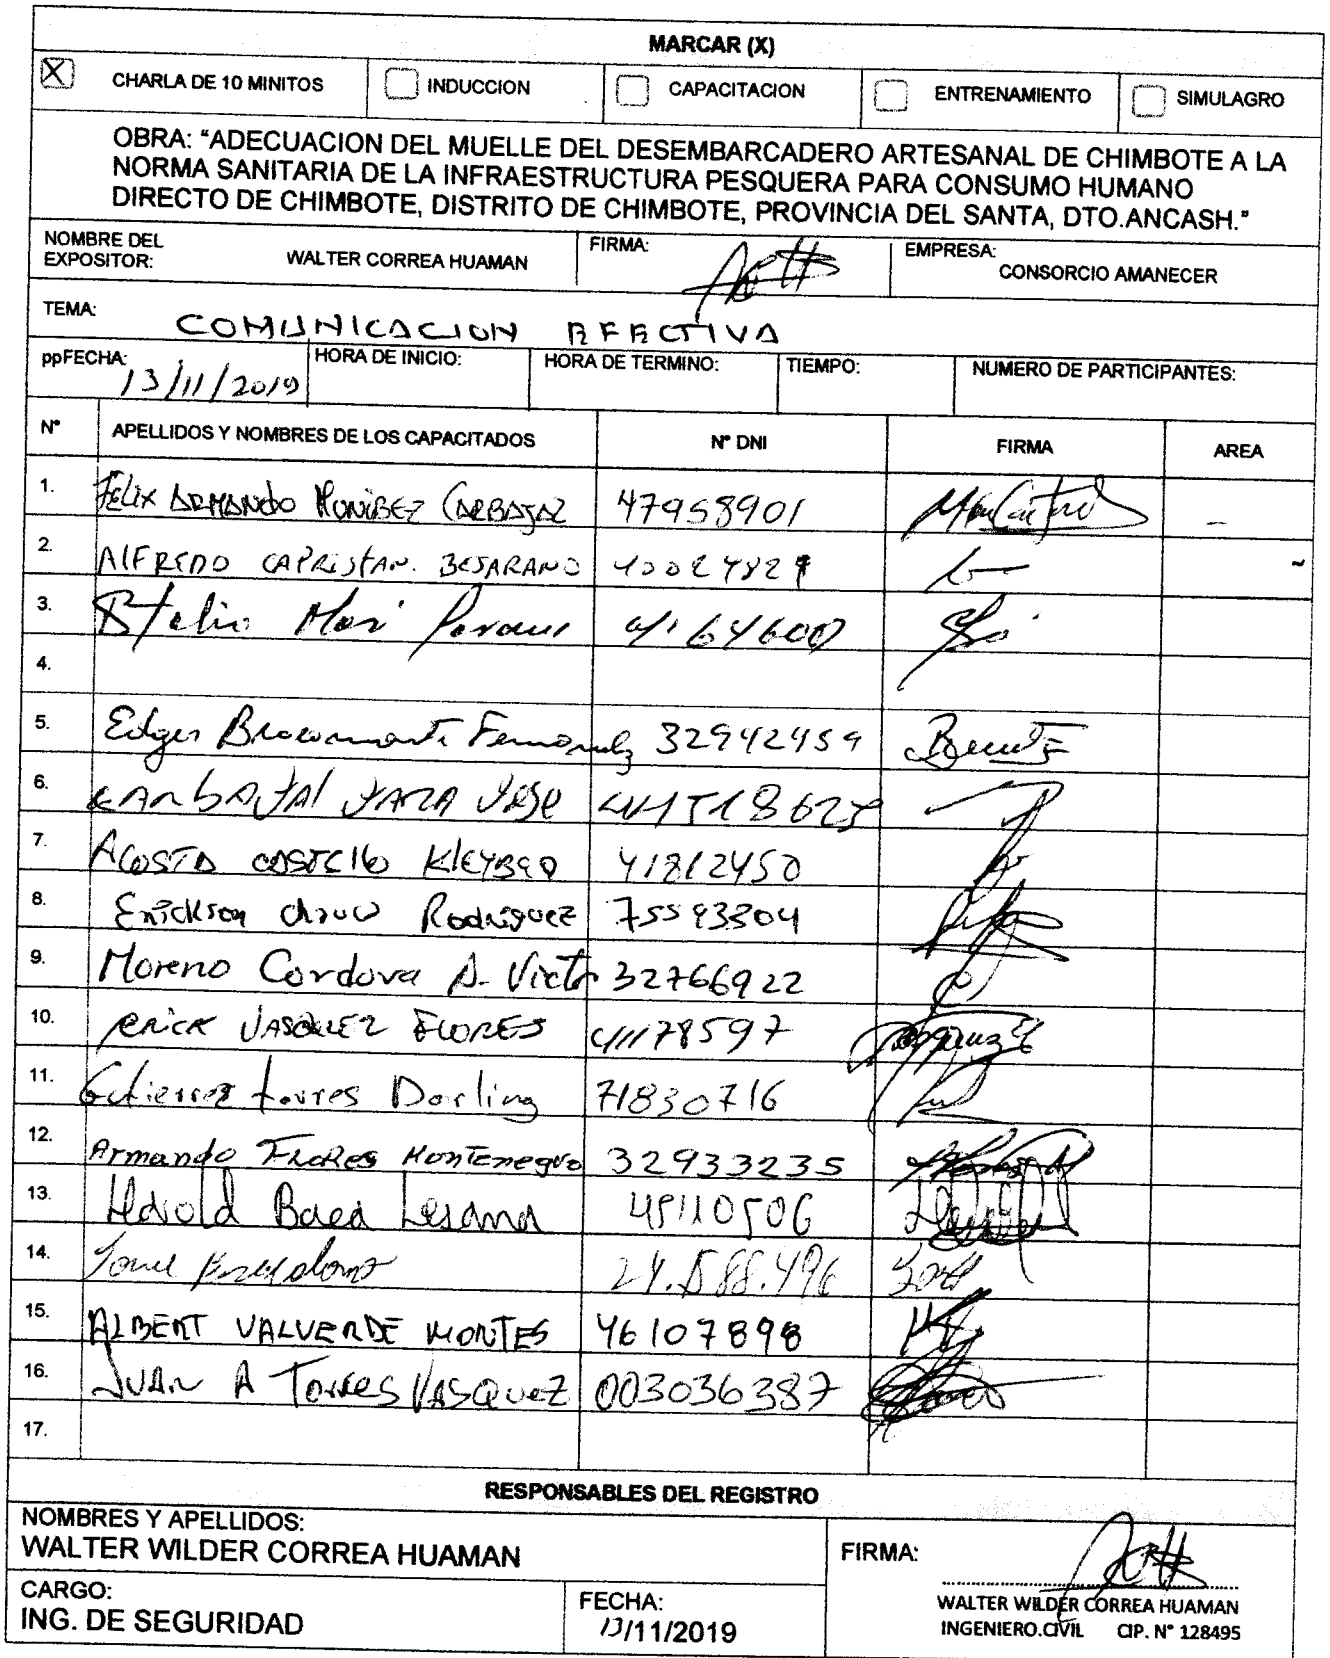 MARCAR (X)
X CHARLA DE 10 MINITOS INDUCCION CAPACITACION ENTRENAMIENTO SIMULAGRO
OBRA: "ADECUACION DEL MUELLE DEL DESEMBARCADERO ARTESANAL DE CHIMBOTE A LA
NORMA SANITARIA DE LA INFRAESTRUCTURA PESQUERA PARA CONSUMO HUMANO
DIRECTO DE CHIMBOTE, DISTRITO DE CHIMBOTE, PROVINCIA DEL SANTA, DTO.ANCASH."
NOMBRE DEL
EXPOSITOR: WALTER CORREA HUAMAN FIRMA: EMPRESA:
CONSORCIO AMANECER
TEMA: COMUNICACION EFECTIVA
ppFECHA: 13/11/2019 HORA DE INICIO: HORA DE TERMINO: TIEMPO: NUMERO DE PARTICIPANTES:
N° APELLIDOS Y NOMBRES DE LOS CAPACITADOS N° DNI FIRMA AREA
1. FELIX ARMANDO CARBAJAL 47958901
2. AlFREDO CAPRISTAN. BEJARANO
3. Mori
4.
5. Edgar 32942459
6. CARBAJAL JARA JOSE
7. ACOSTA COSTCIlo KLEYBER 41812450
8. Erickson Rodriguez 75593304
9. Moreno Cordova A. Victor 32766922
10. ERICK VASQUEZ FLORES 41178597
11. Gutierrez torres Darling 71830716
12. Armando FLORES MONTENEGRO 32933235
13. Harold Baca 45110506
14. 24.588.496
15. ALBERT VALVERDE MONTES 46107898
16. JUAN A TORRES VASQUEZ 003036387
17.
RESPONSABLES DEL REGISTRO
NOMBRES Y APELLIDOS:
WALTER WILDER CORREA HUAMAN FIRMA:
CARGO:
ING. DE SEGURIDAD FECHA:
13/11/2019
WALTER WILDER CORREA HUAMAN
INGENIERO.CIVIL CIP. N° 128495